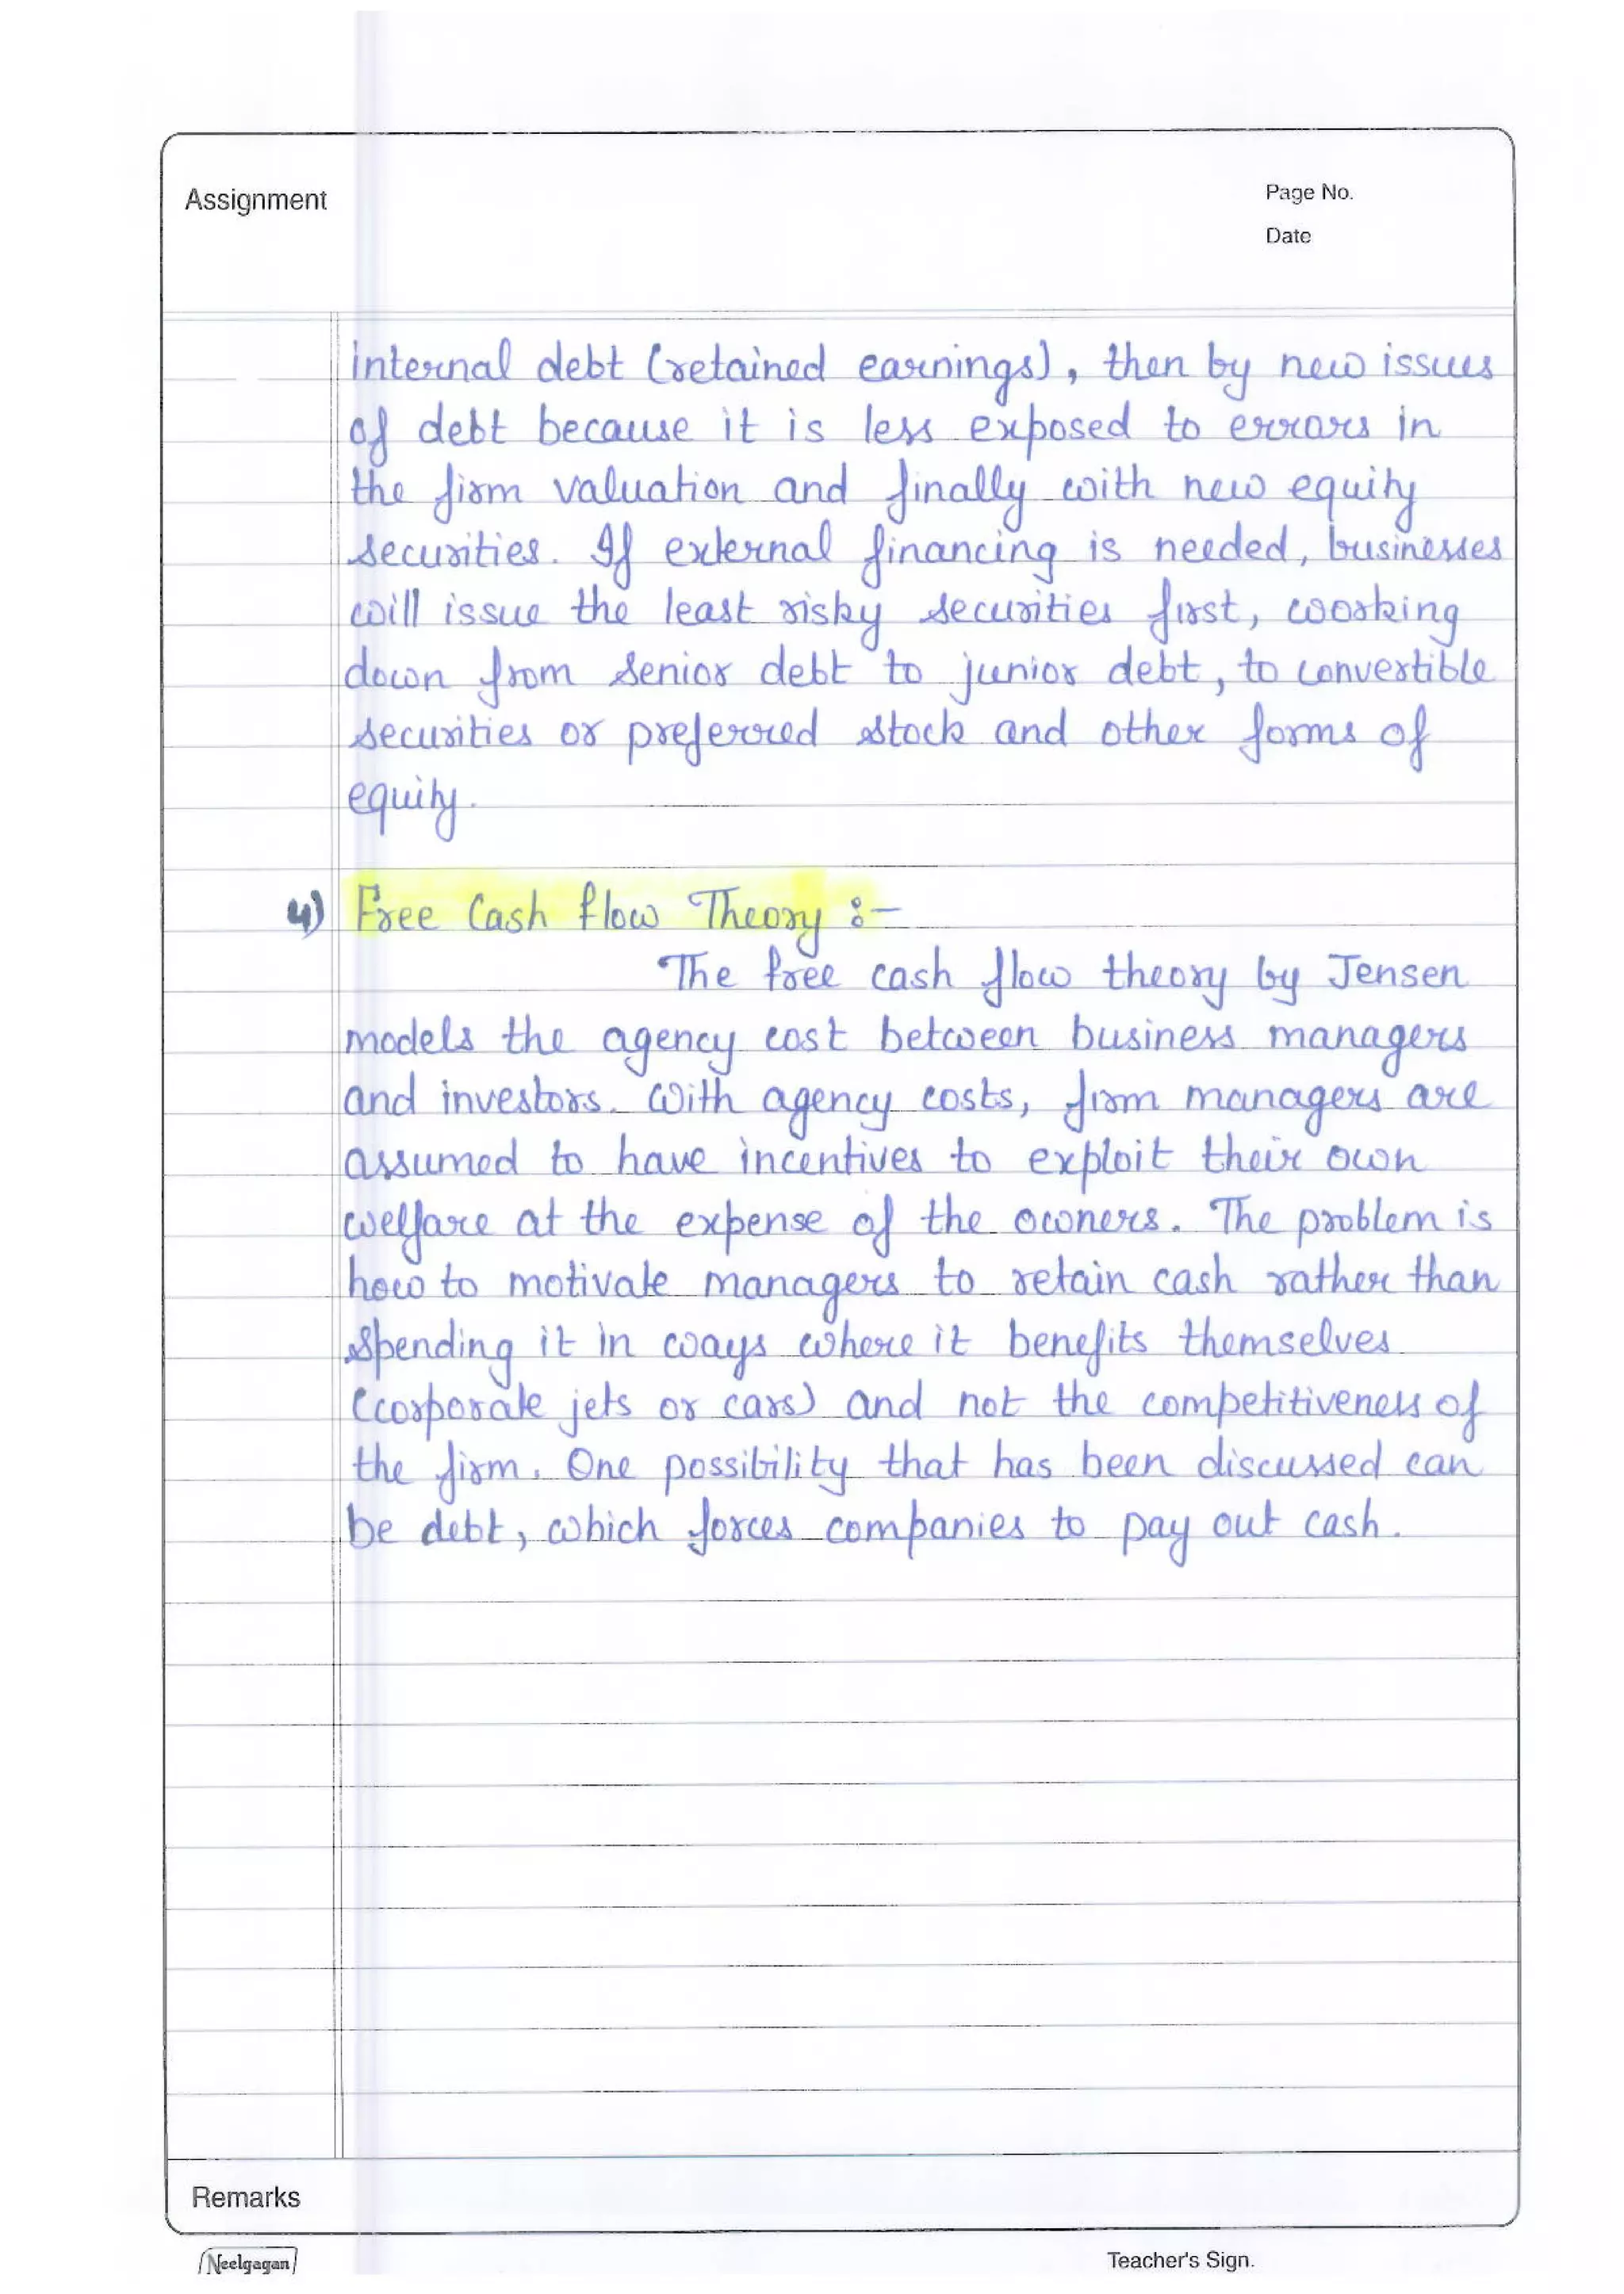 Assignment
Page No.
Date
internal debt (retained earnings), then by new issues
of debt because it is less exposed to errors in
the firm valuation and finally with new equity
securities. If external financing is needed, businesses
will issue the least risky securities first, working
down from senior debt to junior debt, to convertible
securities or preferred stock and other forms of
equity.
4) Free Cash flow Theory :-
The free cash flow theory by Jensen
models the agency cost between business managers
and investors. With agency costs, firm managers are
assumed to have incentives to exploit their own
welfare at the expense of the owners. The problem is
how to motivate managers to retain cash rather than
spending it in ways where it benefits themselves
(corporate jets or cars) and not the competitiveness of
the firm. One possibility that has been discussed can
be debt, which forces companies to pay out cash.
Remarks
Neelgagan
Teacher's Sign.